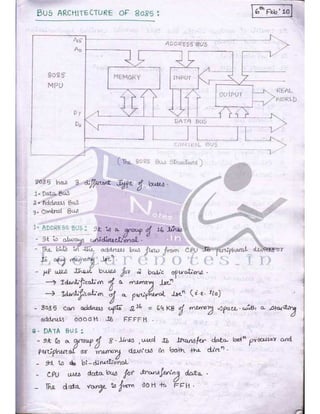 BUS ARCHITECTURE OF 8085 :
6th Feb '10
A15
A0
ADDRESS BUS
8085
MPU
MEMORY
INPUT
OUTPUT
REAL
WORLD
D7
D0
DATA BUS
CONTROL BUS
(The 8085 Bus Structure)
8085 has 3 different type of buses.
1- Data Bus
2- Address Bus
3- Control Bus
1- ADDRESS BUS : It is a group of 16 lines
- It is always unidirectional.
- The bits in the address bus flow from CPU to peripheral devices
- μP uses these buses for 2 basic operations -
→ Identification of a memory locn
→ Identification of a peripheral locn (i.e. I/O)
- 8085 can address upto 2^16 = 64 KB of memory space with a starting
address 0000H to FFFFH.
2- DATA BUS :
- It is a group of 8-lines, used to transfer data betn processor and
peripherals or memory devices in both the dirn.
- It is bi-directional.
- CPU uses data bus for transfering data.
- The data range is from 00H to FFH.
Notes
purenotes.in